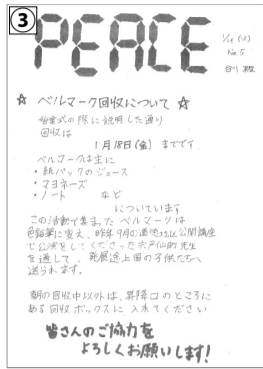 ③
PEACE
No.5
☆ ベルマーク回収について ☆
始業式の際に説明した通り
回収は
1月18日(金) までです
ベルマークは主に
・紙パックのジュース
・マヨネーズ
・ノート など
についています
この活動で集まったベルマークは
色鉛筆に変え、昨年9月の道徳
公開講座
で公演をしてくださった宍戸仙助先生
を通して、発展途上国の子供たちへ
送られます。
朝の回収中以外は、昇降口のところに
ある回収ボックスに入れてください
皆さんのご協力を
よろしくお願いします!